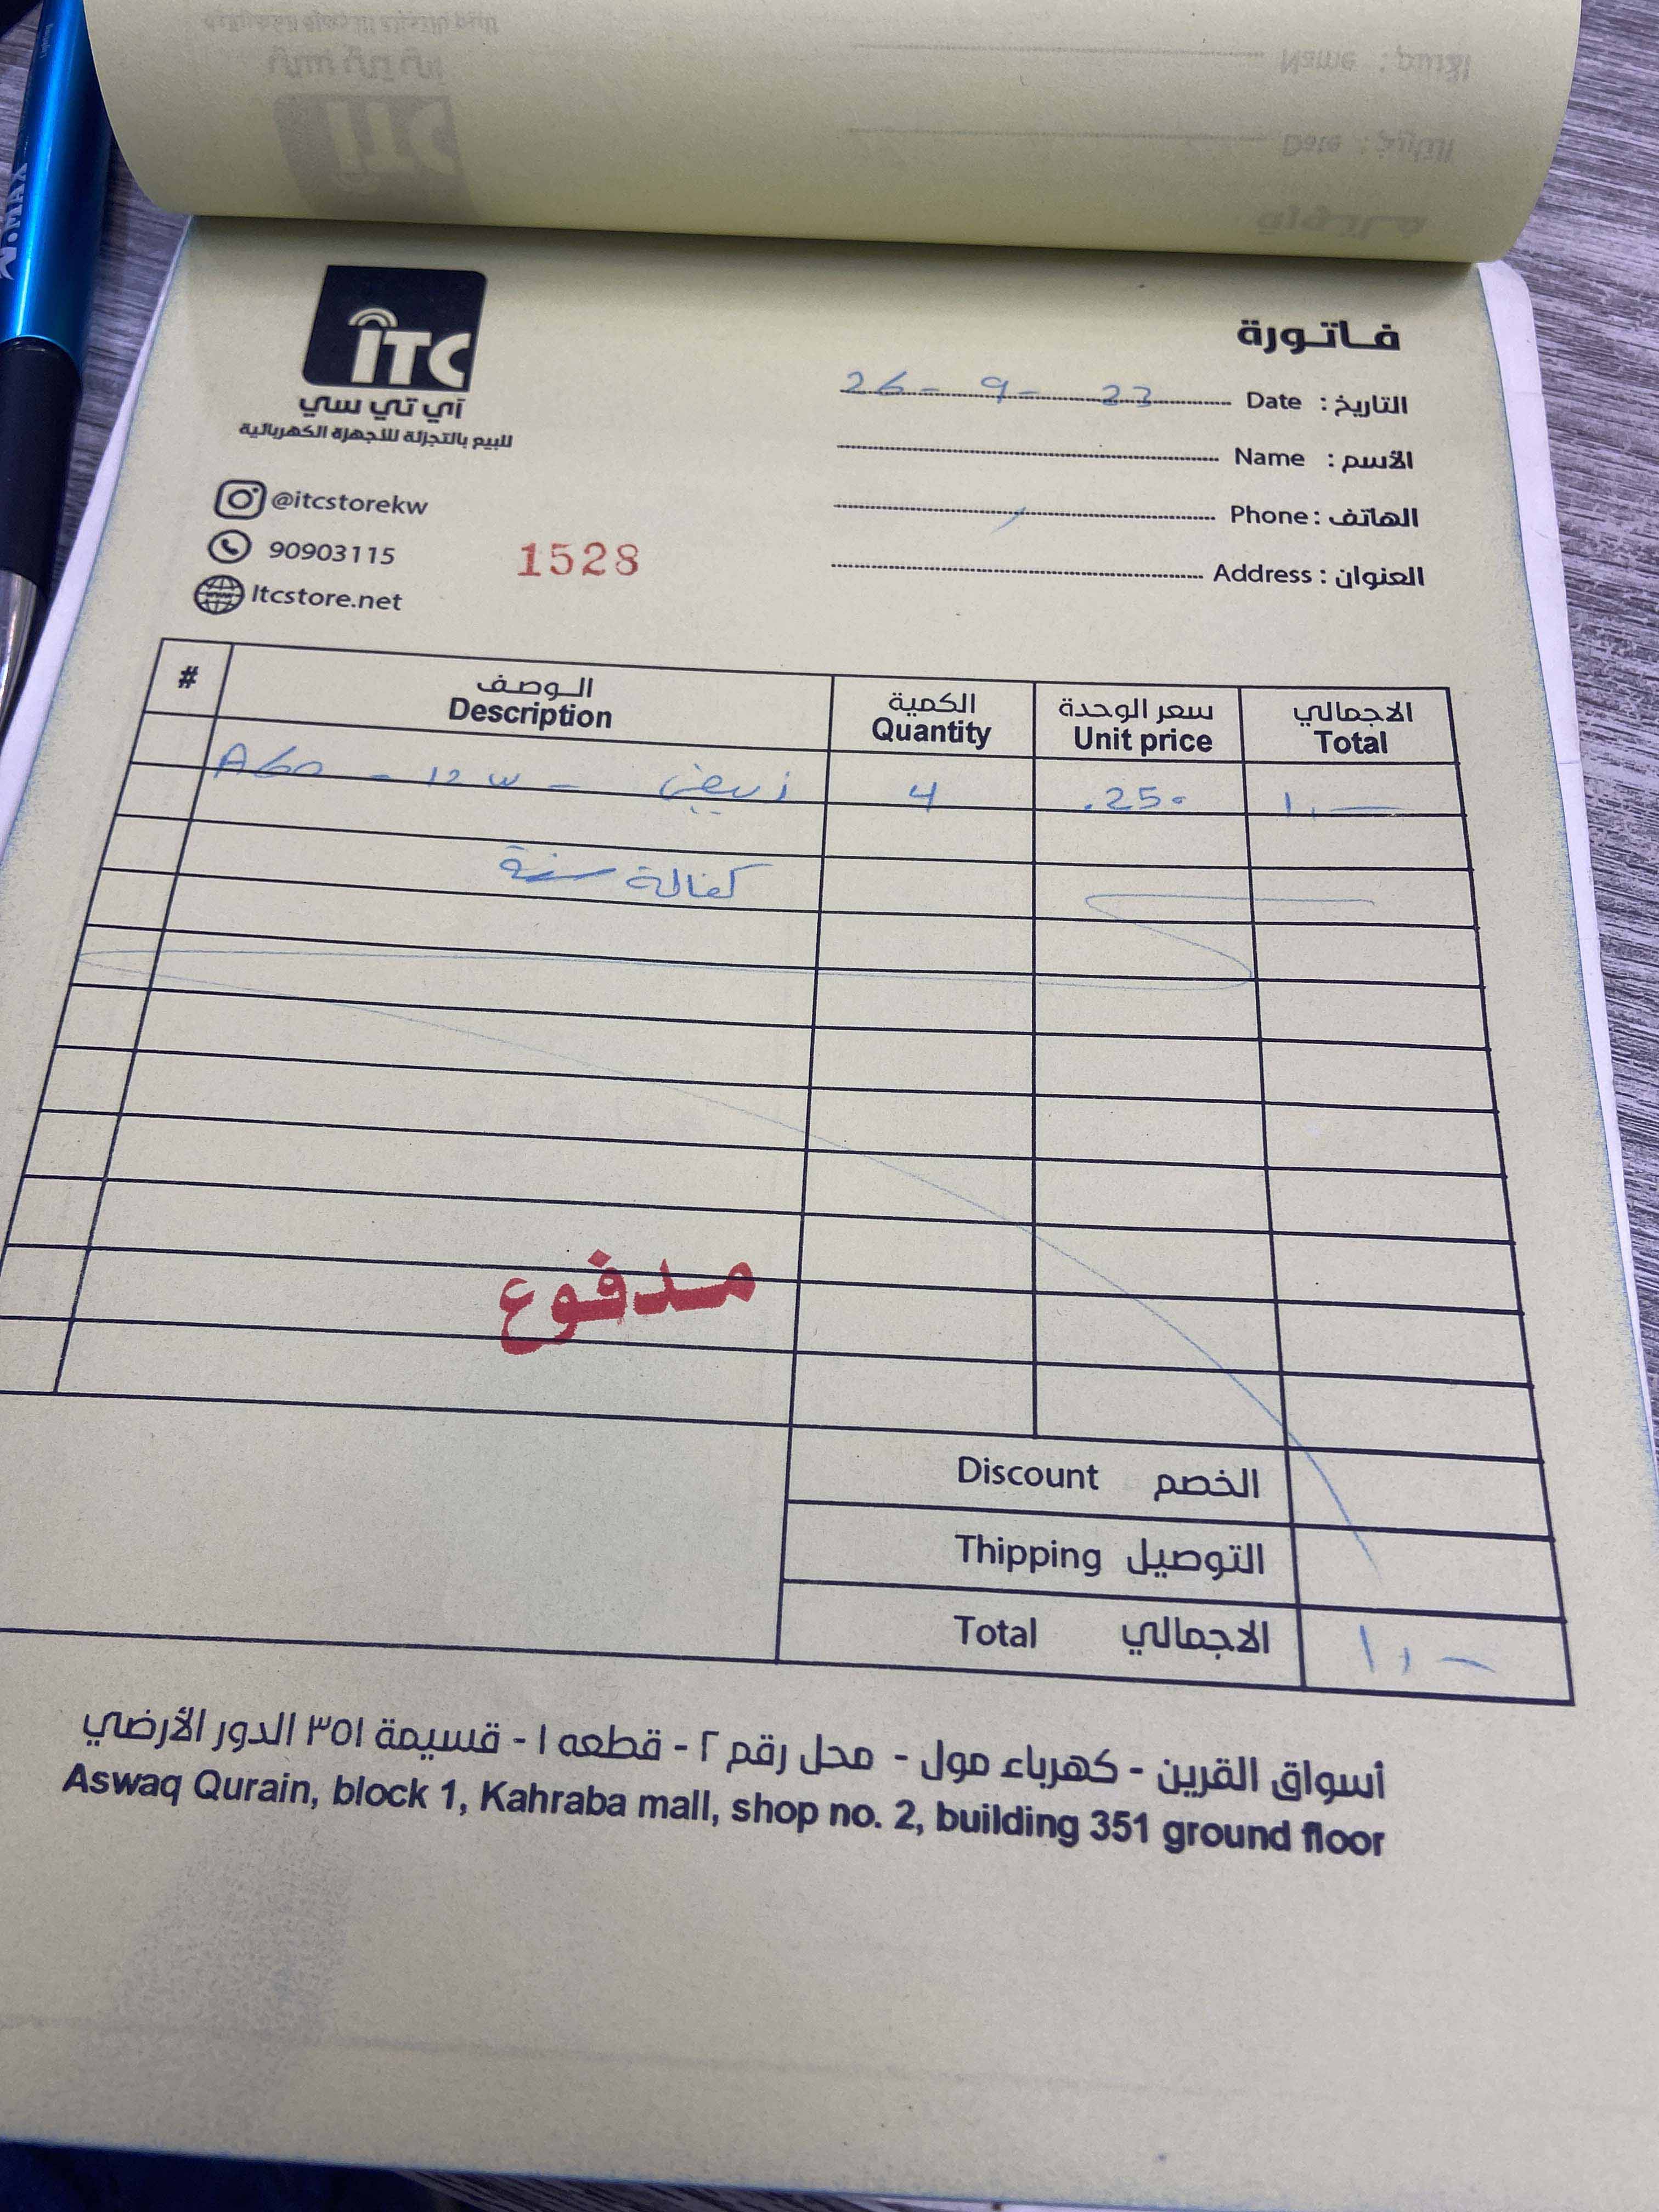 ITC
آي تي سي
للبيع بالتجزئة للأجهزة الكهربائية
@itcstorekw
90903115
Itcstore.net
1528
فاتورة
التاريخ : Date 26 - 9 - 23
الأسم : Name
الهاتف : Phone
العنوان : Address
# الوصف الكمية سعر الوحدة الاجمالي
Description Quantity Unit price Total
A60 - 12 w - ابيض 4 .250 1,—
كفالة سنة
مدفوع
Discount الخصم
Thipping التوصيل
Total الاجمالي 1,—
أسواق القرين - كهرباء مول - محل رقم ٢ - قطعه ١ - قسيمة ٣٥١ الدور الأرضي
Aswaq Qurain, block 1, Kahraba mall, shop no. 2, building 351 ground floor